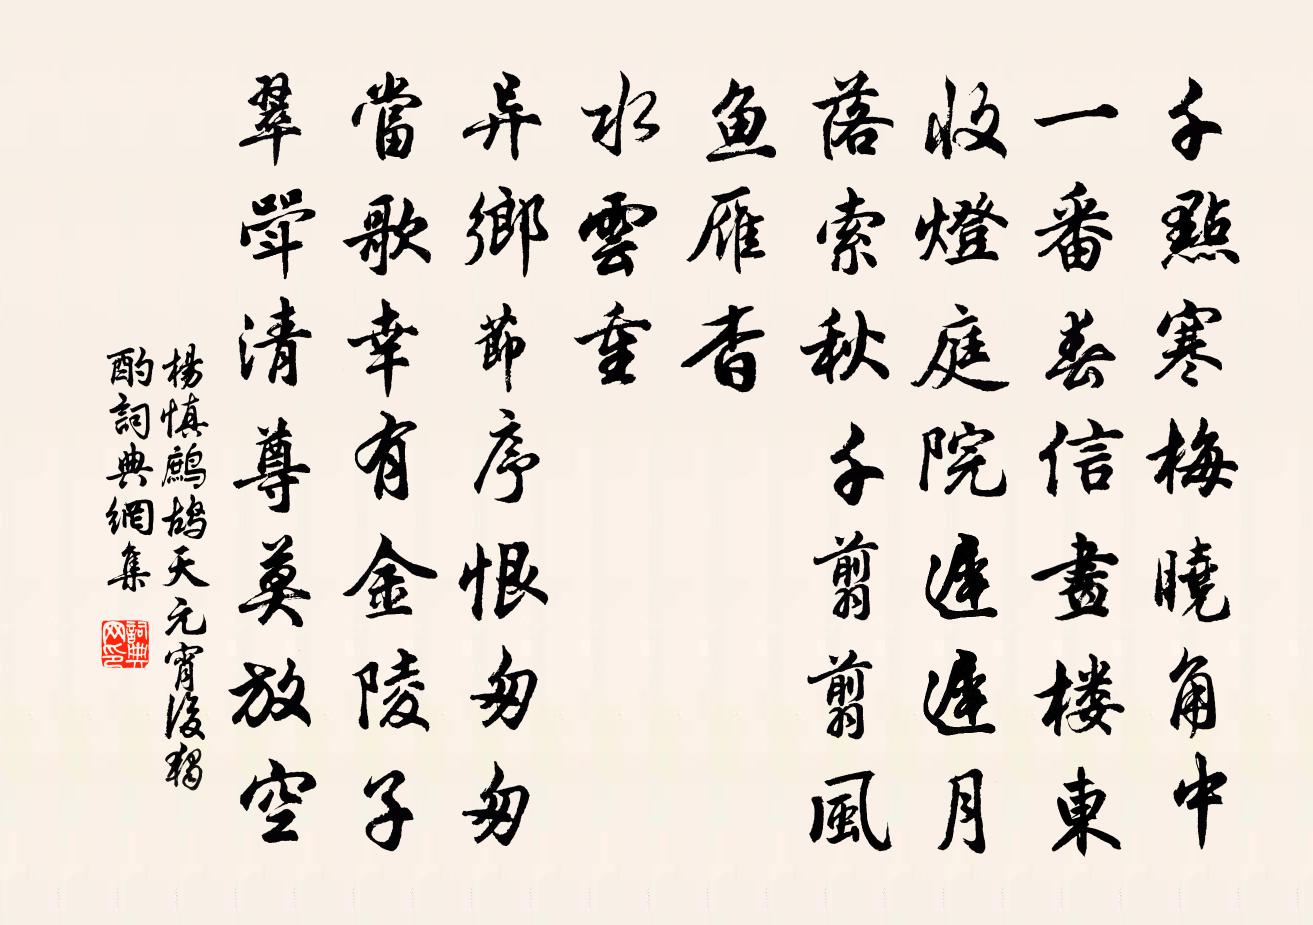 千點寒梅曉角中
一番春信畫楼東
收燈庭院遲遲月
落索秋千翦翦風
鱼雁杳
水雲重
异鄉節序恨匆匆
當歌幸有金陵子
翠斝清尊莫放空
楊慎鷓鴣天元宵後獨
酌詞典網集
詞典网印